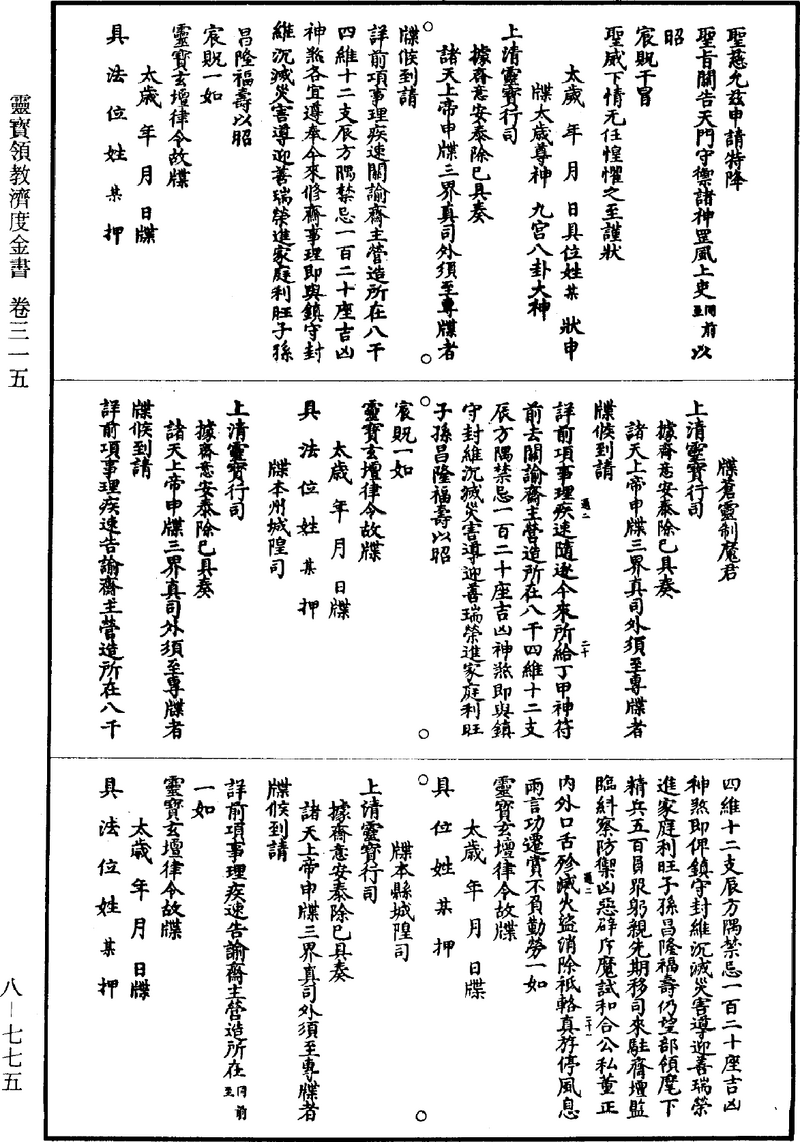 聖慈允兹申請特降
聖旨關告天門守禦諸神罡風上吏同前以至
昭
宸眖干冒
聖威下情无任惶懼之至謹狀
太歲 年 月 日具位姓某 狀申
牒太歲尊神 九宫八卦大神
上清靈寶行司
據齋意安泰除已具奏
諸天上帝申牒三界真司外須至專牒者
牒候到請
詳前項事理疾速關諭齋主營造所在八干
四維十二支辰方隅禁忌一百二十座吉凶
神煞各宜遵奉今來修齋事理即與鎮守封
維沉滅災害導迎善瑞榮進家庭利旺子孫
昌隆福壽以昭
宸眖一如
靈寶玄壇律令故牒
太歲 年 月 日牒
具 法 位 姓 某 押
牒蒼靈制魔君
上清靈寶行司
據齋意安泰除已具奏
諸天上帝申牒三界真司外須至專牒者
牒候到請
詳前項事理疾速隨逐今來所給丁甲神符
前去關諭齋主營造所在八干四維十二支
辰方隅禁忌一百二十座吉凶神煞即與鎮
守封維沉滅災害導迎善瑞榮進家庭利旺
子孫昌隆福壽以昭
宸眖一如
靈寶玄壇律令故牒
太歲 年 月 日牒
具 法 位 姓 某 押
牒本州城隍司
上清靈寶行司
據齋意安泰除已具奏
諸天上帝申牒三界真司外須至專牒者
牒候到請
詳前項事理疾速告諭齋主營造所在八干
四維十二支辰方隅禁忌一百二十座吉凶
神煞即俾鎮守封維沉滅災害導迎善瑞榮
進家庭利旺子孫昌隆福壽仍望部領麾下
精兵五百員眾躬親先期移司來駐齋壇監
臨糾察防禦凶惡辟斥魔試和合公私董正
內外口舌殄滅火盜消除祇輅真斿停風息
雨言功遷賞不負勤勞一如
靈寶玄壇律令故牒
太歲 年 月 日牒
具 位 姓 某 押
牒本縣城隍司
上清靈寶行司
據齋意安泰除已具奏
諸天上帝申牒三界真司外須至專牒者
牒候到請
詳前項事理疾速告諭齋主營造所在同前至
一如
靈寶玄壇律令故牒
太歲 年 月 日牒
具 法 位 姓 某 押
靈寶領教濟度金書 卷三一五
八－七七五